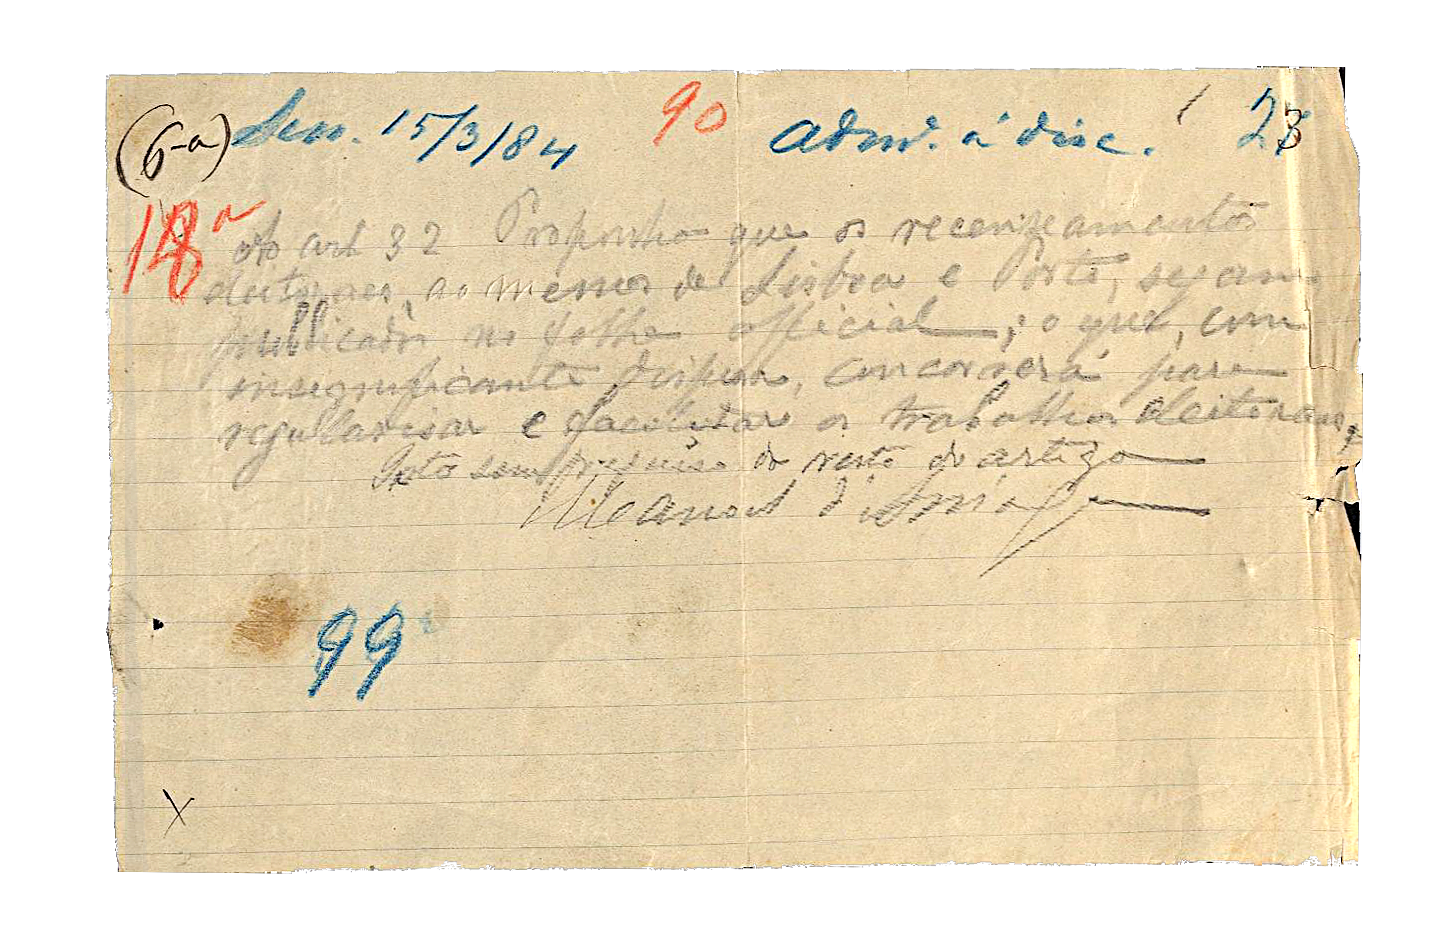 (6-a) Sess. 15/3/84 90 Adm. á disc. 23
18ª
Ao art 32 Proponho que os recenseamentos
eleitoraes, ao menos de Lisboa e Porto, sejam
publicados na folha official; o que, com
insignificante despesa, concorrerá para
regularisar e facilitar os trabalhos eleitoraes,
Isto sem prejuiso do resto do artigo
Manoel d'Arriaga
99
X